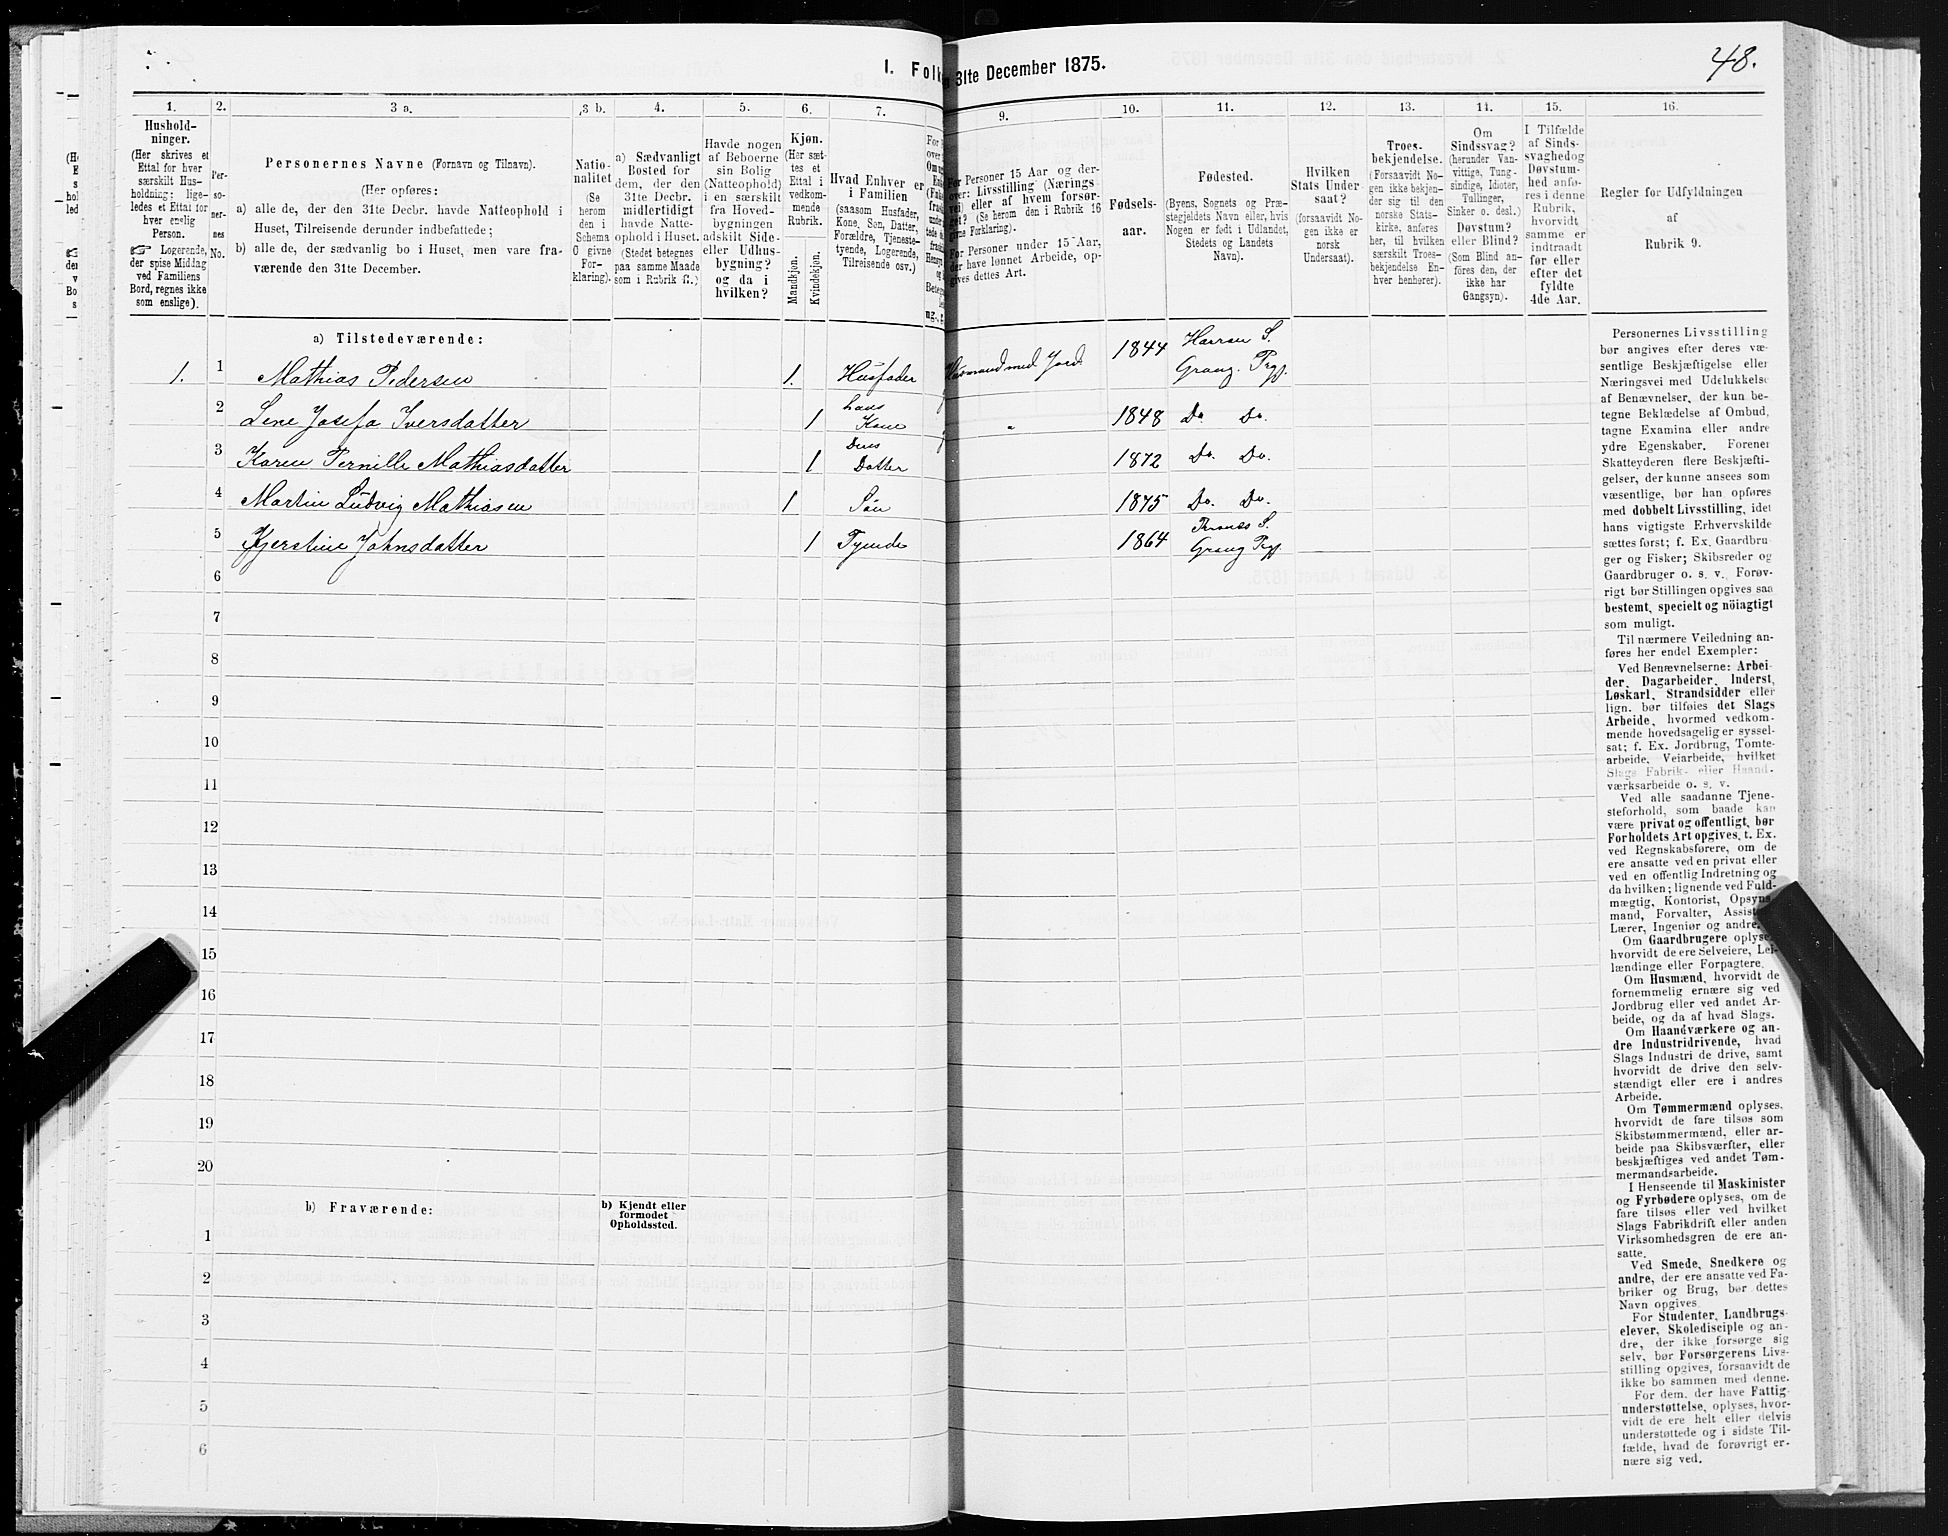 48.
1. Folk
31te December 1875.
1. 2. 3 a. 3 b. 4. 5. 6. 7. 9. 10. 11. 12. 13. 14. 15. 16.
Hushold-
ninger.
(Her skrives et
Ettal for hver
særskilt Hus-
holdning; lige-
ledes et Ettal for
hver enslig
Person.
☞ Logerende,
der spise Middag
ved Familiens
Bord, regnes ikke
som enslige).
Per-
so-
ner-
nes
No.
Personernes Navne (Fornavn og Tilnavn).
(Her opføres:
a) alle de, der den 31te Decbr. havde Natteophold i
Huset, Tilreisende derunder indbefattede;
b) alle de, der sædvanlig bo i Huset, men vare fra-
værende den 31te December.
Natio-
nalitet
(Se
herom
den i
Schema
0 givne
For-
klaring).
a) Sædvanligt
Bosted for
dem, der den
31te Decbr.
midlertidigt
havde Natte-
ophold i Huset.
(Stedet betegnes
paa samme Maade
som i Rubrik 11.)
Havde nogen
af Beboerne
sin Bolig
(Natteophold)
i en særskilt
fra Hoved-
bygningen
adskilt Side-
eller Udhus-
bygning?
og da i
hvilken?
Kjøn.
(Her sæt-
tes et
Ettal i
vedkom-
mende
Rubrik.
Mandkjøn.
Kvindekjøn.
Hvad Enhver er
i Familien
(saasom Husfader,
Kone, Søn, Datter,
Forældre, Tjeneste-
tyende, Logerende,
Tilreisende osv.)
For Personer 15 Aar og der-
over: Livsstilling (Nærings-
vei) eller af hvem forsør-
get? (Se herom den i Rubrik 16
givne Forklaring).
For Personer under 15 Aar,
der have lønnet Arbeide, op-
gives dettes Art.
Fødsels-
aar.
Fødested.
(Byens, Sognets og Præ-
stegjeldets Navn eller, hvis
Nogen er født i Udlandet,
Stedets og Landets
Navn).
Hvilken
Stats Under-
saat?
(forsaavidt No-
gen ikke er
norsk
Undersaat).
Troes-
bekjendelse.
(Forsaavidt No-
gen ikke bekjen-
der sig til den
norske Stats-
kirke, anføres
her, til hvilken
særskilt Troes-
bekjendelse En-
hver henhører).
Om
Sindssvag?
(herunder Van-
vittige, Tung-
sindige, Idioter,
Tullinger,
Sinker o. desl.)
Døvstum?
eller Blind?
(Som Blind an-
føres den, der
ikke har
Gangsyn).
I Tilfælde
af Sinds-
svaghedog
Døvstum-
hed anfø-
res i denne
Rubrik,
hvorvidt
samme er
indtraadt
før eller
efter det
fyldte
4de Aar.
Regler for Udfyldningen
af
Rubrik 9.
a) Tilstedeværende:
1. 1 Mathias Pedersen 1. Husfader Husmand med Jord. 1844 Harran S.
Grong. Prgj.
2 Lene Josefa Iversdatter 1 hans
Kone " 1848 Do. Do.
3 Karen Pernille Mathiasdatter 1 Deres
Datter 1872 Do. Do.
4 Martin Ludvig Mathiasen 1 Søn 1875 Do. Do.
5 Kjerstine Johnsdatter 1 Tyende 1864 S.
Grong Prgj.
6
7
8
9
10
11
12
13
14
15
16
17
18
19
20
b) Fraværende:
b) Kjendt eller
formodet
Opholdssted.
1
2
3
4
5
6
Personernes Livsstilling
bør angives efter deres væ-
sentlige Beskjæftigelse eller
Næringsvei med Udelukkelse
af Benævnelser, der kun be-
tegne Beklædelse af Ombud,
tagne Examina eller andre
ydre Egenskaber. Forener
Skatteyderen flere Beskjæfti-
gelser, der kunne ansees som
væsentlige, bør han opføres
med dobbelt Livsstilling, idet
hans vigtigste Erhvervskilde
sættes først; f. Ex. Gaardbru-
ger og Fisker; Skibsreder og
Gaardbruger o. s. v. Forøv-
rigt bør Stillingen opgives saa
bestemt, specielt og nöiagtigt
som muligt.
Til nærmere Veiledning an-
føres her endel Exempler:
Ved Benævnelserne: Arbei-
der, Dagarbeider, Inderst,
Løskarl, Strandsidder eller
lign. bør tilføies det Slags
Arbeide, hvormed vedkom-
mende hovedsagelig er syssel-
sat; f. Ex. Jordbrug, Tomte-
arbeide, Veiarbeide, hvilket
Slags Fabrik- eller Haand-
værksarbeide o. s. v.
Ved alle saadanne Tjene-
steforhold, som baade kan
være privat og offentligt, bør
Forholdets Art opgives, t. Ex.
ved Regnskabsførere, om de
ere ansatte ved en privat eller
ved en offentlig Indretning og
da hvilken; lignende ved Fuld-
mægtig, Kontorist, Opsyns-
mand, Forvalter, Assist
Lærer, Ingeniør og andre.
Om Gaardbrugere oplyse
hvorvidt de ere Selveiere, Lei-
lændinge eller Forpagtere.
Om Husmænd, hvorvidt de
fornemmelig ernære sig ved
Jordbrug eller ved andet Ar-
beide, og da af hvad Slags.
Om Haandværkere og an-
dre Industridrivende, hvad
Slags Industri de drive, samt
hvorvidt de drive den selv-
stændigt eller ere i andres
Arbeide.
Om Tømmermænd oplyses,
hvorvidt de fare tilsøs som
Skibstømmermænd, eller ar-
beide paa Skibsværfter, eller
beskjæftiges ved andet Tøm-
mermandsarbeide.
I Henseende til Maskinister
og Fyrbødere oplyses, om de
fare tilsøs eller ved hvilket
Slags Fabrikdrift eller anden
Virksomhedsgren de ere an-
satte.
Ved Smede, Snedkere og
andre, der ere ansatte ved Fa-
briker og Brug, bør dettes
Navn opgives.
For Studenter, Landbrugs-
elever, Skoledisciple og an-
dre, der ikke forsørge sig
selv, bør Forsørgerens Livs-
stilling opgives, forsaavidt de
ikke bo sammen med denne.
For dem, der have Fattig-
understøttelse, oplyses, hvor-
vidt de ere helt eller delvis
understøttede og i sidste Til-
fælde, hvad de forøvrigt er-
nære sig ved.